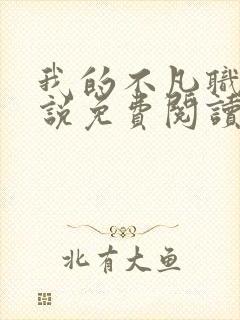 我的不凡職
說免費閱讀
北有大魚